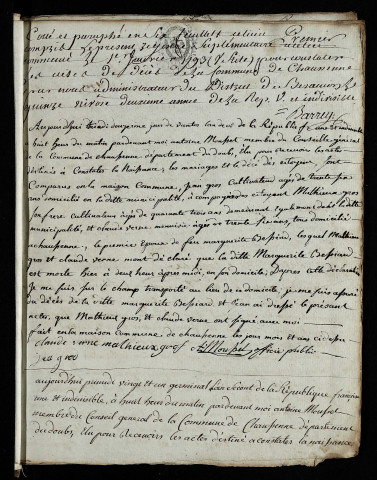 Cotté et paraphé en six feuillets celui-ci
compris le present registre supplémentaire
commencé le 1er janvier 1793 (V. Stile) pour constater
les actes de décès de la commune de Chaucenne
par nous administrateur du District de Besançon le
quinze nivose deuxieme année de la Rep. f. une et indivisible
Barrey
Aujourdhui tridi deuxieme jour de ventose l'an deux de la République f. une et indivisible
huit heur du matin pardevant moi antoine Mouset membre du Conseil général
de la Commune de chaucenne département du doubs, élu pour recevoir les actes
destinés à Constater la Naissance, les mariages et le décès des citoyens, sont
Comparus en la maison Commune, jean gros cultivateur agé de trente
ans domicilié en la ditte municipalité, accompagné des citoyens Mathieu gros
son frere cultivateur agé de quarante trois ans demeurant également dans la ditte
municipalité, et claude verne menuisier agé de trente ans, tous domiciliés
a chaucenne, le premier époux de feue marguerite Bessard, lesquels Mathieu
gros et claude verne m'ont déclaré que la ditte Marguerite Bessard
est morte hier à deux heures après midi, en son domicile. D'après cette déclaration
Je me suis sur le champ transporté au lieu de ce domicile, je me suis assuré
du décès de la ditte marguerite Bessard, et j'en ai dressé le présent
acte, que Mathieu gros, et claude verne ont signé avec moi
fait en la maison commune de chaucenne les jour mois et ans ci dessus
claude verne mathieux gros A Mouset officier public
jea gros
aujourd'hui primidi vingt et un germinal l'an second de la République française
une et indivisible, à huit heures du matin pardevant moi antoine Mouset
membre du Conseil general de la Commune de Chaucenne département
du doubs, élu pour recevoir les actes destinés a constater la naissance